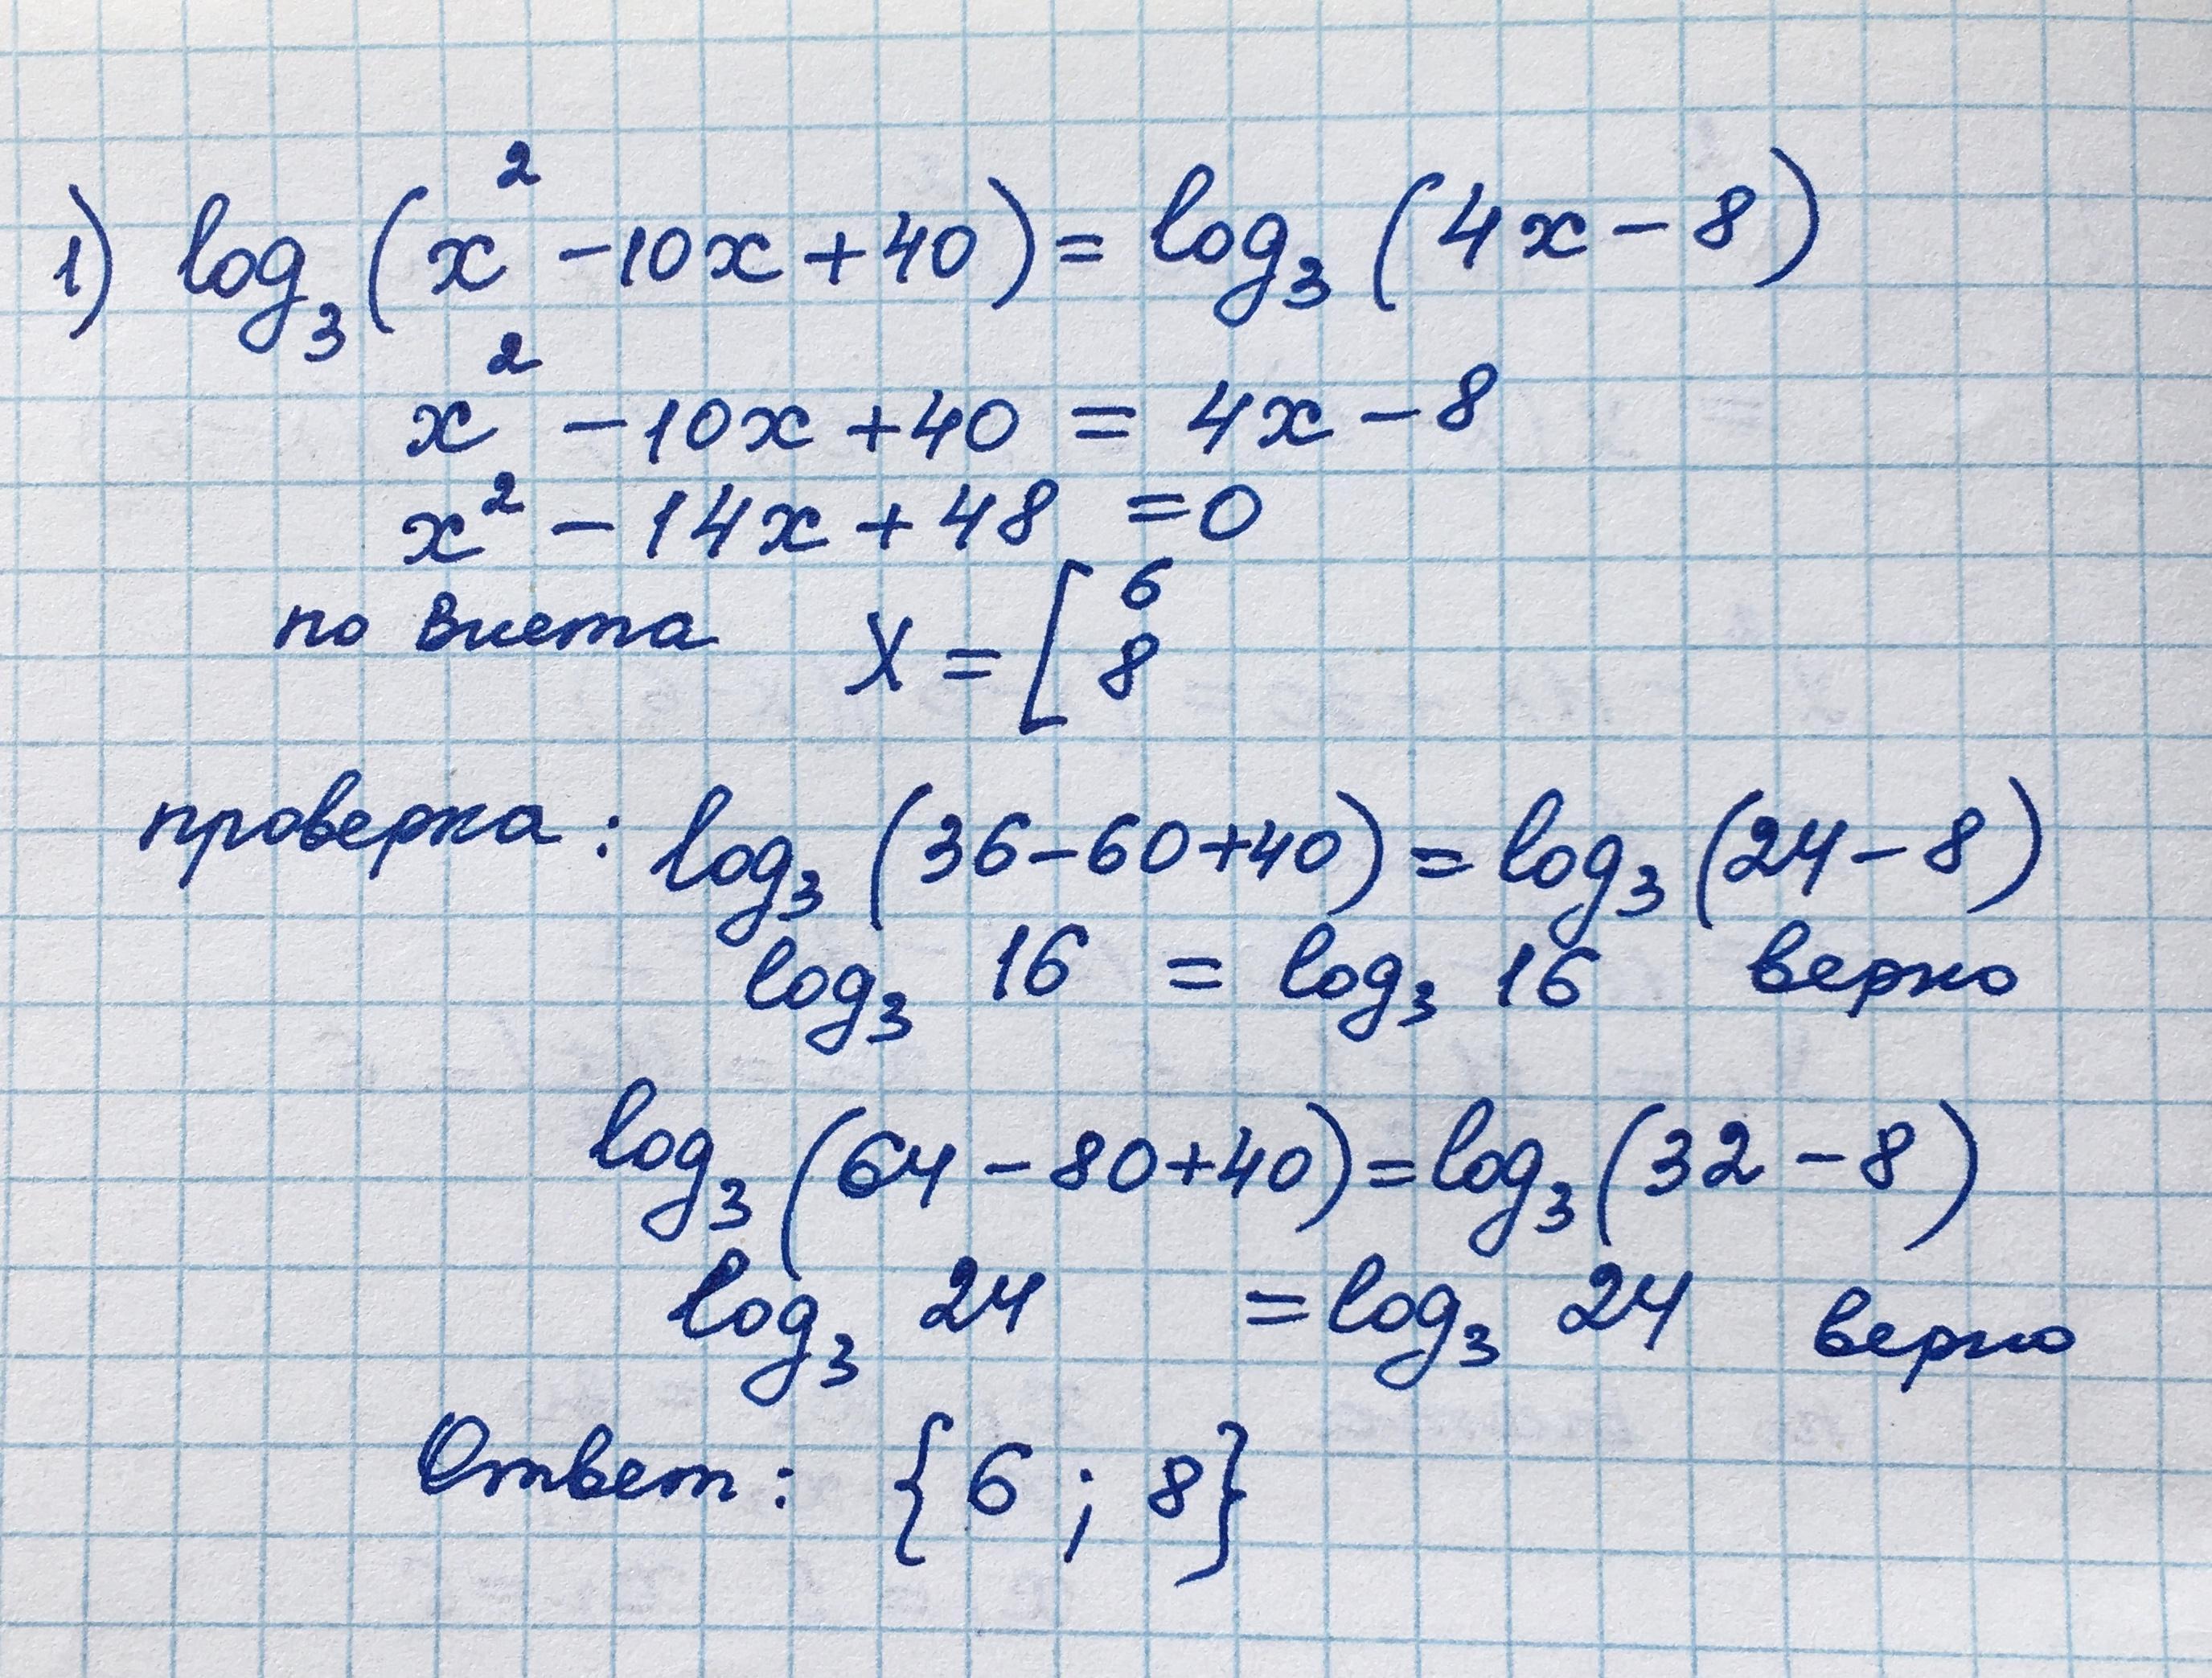 1) log₃(x² -10x+40) = log₃(4x-8)
x² -10x+40 = 4x-8
x² -14x+48 =0
по Виета X = [ 6
8
проверка: log₃(36-60+40) = log₃(24-8)
log₃ 16 = log₃ 16 верно
log₃(64-80+40)=log₃(32-8)
log₃ 24 =log₃ 24 верно
Ответ: {6 ; 8}